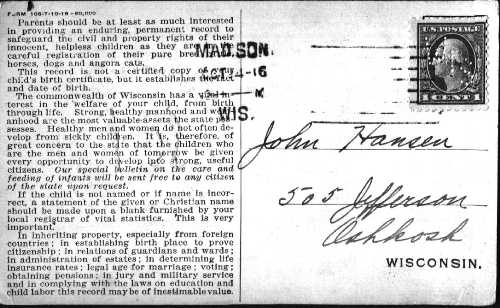 FORM 106-7-10-16-60,000
Parents should be at least as much interested
in providing an enduring, permanent record to
safeguard the civil and property rights of their
innocent, helpless children as they are in the
careful registration of their pure bred
horses, dogs and angora cats.
This record is not a certified copy of any
child's birth certificate, but it establishes the fact
and date of birth.
The commonwealth of Wisconsin has a vital in-
terest in the welfare of your child, from birth
through life. Strong, healthy manhood and wom-
anhood are the most valuable assets the state pos-
sesses. Healthy men and women do not often de-
velop from sickly children. It is, therefore, of
great concern to the state that the children who
are the men and women of tomorrow be given
every opportunity to develop into strong, useful
citizens. Our special bulletin on the care and
feeding of infants will be sent free to any citizen
of the state upon request.
If the child is not named or if name is incor-
rect, a statement of the given or Christian name
should be made upon a blank furnished by your
local registrar of vital statistics. This is very
important.
In inheriting property, especially from foreign
countries; in establishing birth place to prove
citizenship; in relations of guardians and wards;
in administration of estates; in determining life
insurance rates; legal age for marriage; voting;
obtaining pensions; in jury and military service
and in complying with the laws on education and
child labor this record may be of inestimable value.
MADISON.
4-16
WIS.
ONE CENT
John Hansen
505 Jefferson
Oshkosh
WISCONSIN.